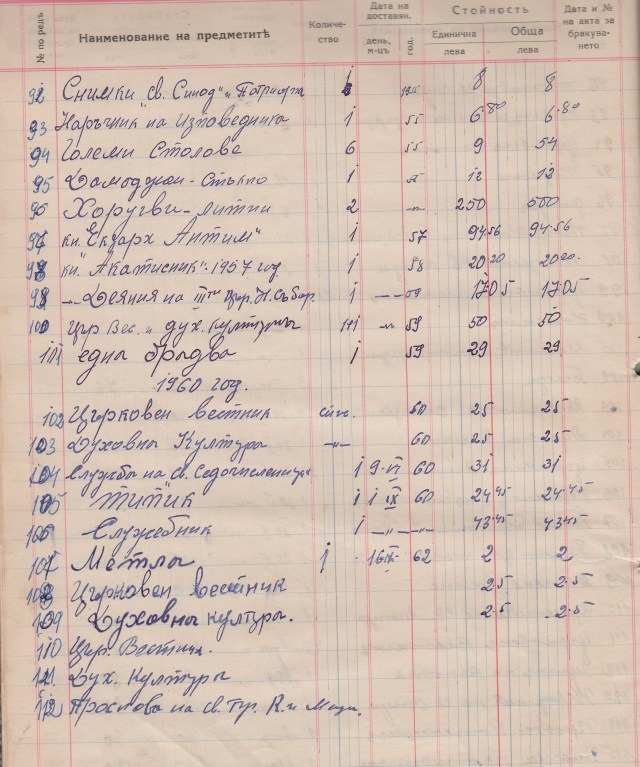 № по редъ Наименование на предметитѣ Количество Дата на доставян. день, м-цъ год. Стойность Единична лева Обща лева Дата и № на акта за бракуването
92 Снимки св. Синод" и Патриарха 1 8 8
93 Наръчник на Изповедника 1 55 6.80 6.80
94 Големи Столове 6 55 9 54
95 Дамаджан - Стъкло 1 12 12
96 Хоругви - литии 2 -"- 250 500
97 кн. Екзарх Антим" 1 57 94.56 94.56
98 кн "Акатисник" 1957 год 1 58 20.20 20.20
99 -"- Деяния на III Цър. Н. Събор 1 -- 59 17.05 17.05
100 Цър Вес. и дух. Културы 1+1 -"- 59 50 50
101 една брадва 1 59 29 29
1960 год.
102 Църковен вестник 60 25 25
103 Духовны Културы -"- 60 25 25
104 Службы на св. Седмочисленици 1 9 VI 60 31 31
105 Типик 1 1 IX 60 24.45 24.45
106 Служебник 1 -"- -"- 43.45 43.45
107 Метлы 1 16 IX 62 2 2
108 Църковен Вестник 2.5 2.5
109 Духовны културы. 2.5 2.5
110 Цър. Вестник.
111. Дух. Културы
112 на св. К. и